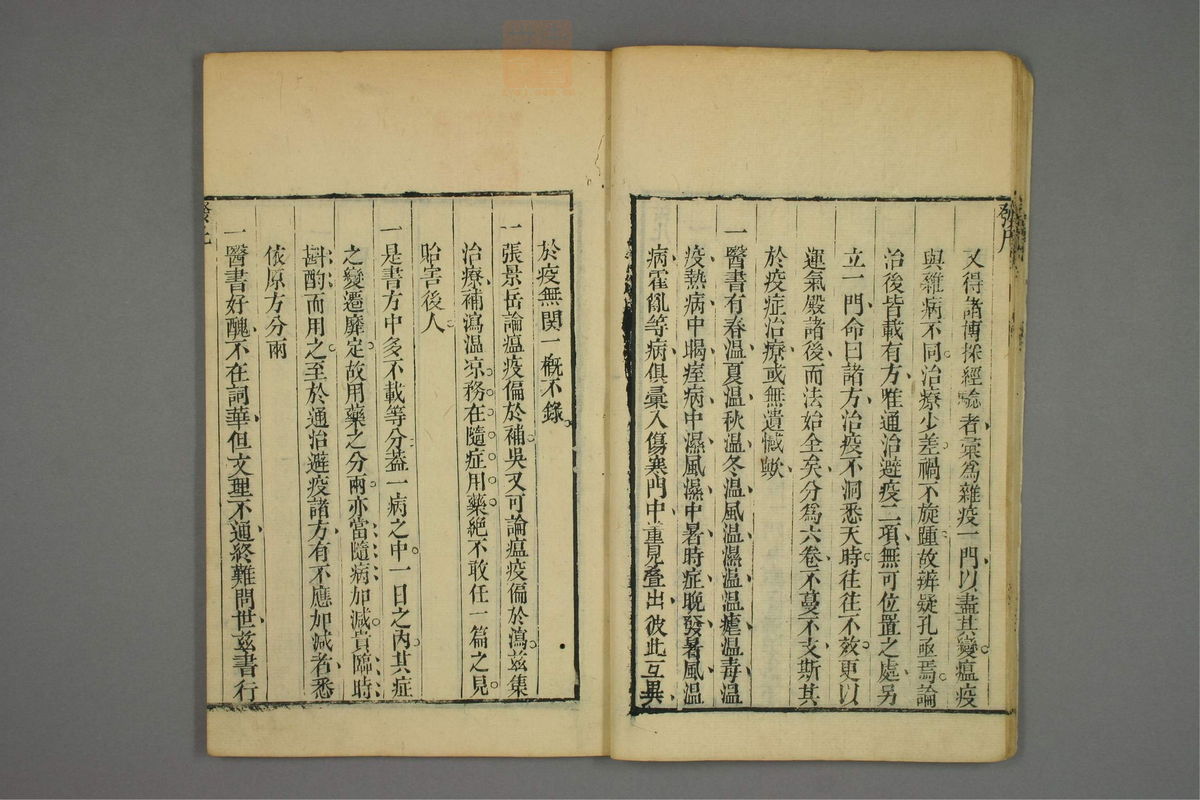 又得諸傳採經驗者彙爲雜疫一門以盡其變瘟疫
與雜病不同治療少差禍不旋踵故辨疑孔亟焉論
治後皆載有方唯通治避疫二項無可位置之處另
立一門命曰諸方治疫不洞悉天時往往不效更以
運氣殿諸後而法始全矣分爲六卷不蔓不支斯其
於疫症治療或無遺憾歟
一醫書有春溫夏溫秋溫冬溫風溫濕溫溫瘧溫毒溫
疫熱病中暍痓病中濕風濕中暑時症晚發暑風溫
病霍亂等病俱彙入傷寒門中重見叠出彼此互異
於疫無関一槪不錄
一張景岳論瘟疫偏於補吳又可論瘟疫偏於瀉兹集
治療補瀉溫凉務在隨症用藥絕不敢任一篇之見
貽害後人
一是書方中多不載等分葢一病之中一日之內其症
之變遷靡定故用藥之分兩亦當隨病加減貴臨時
斟酌而用之至於通治避疫諸方有不應加減者悉
依原方分兩
一醫書好醜不在詞華但文理不通終難問世兹書行